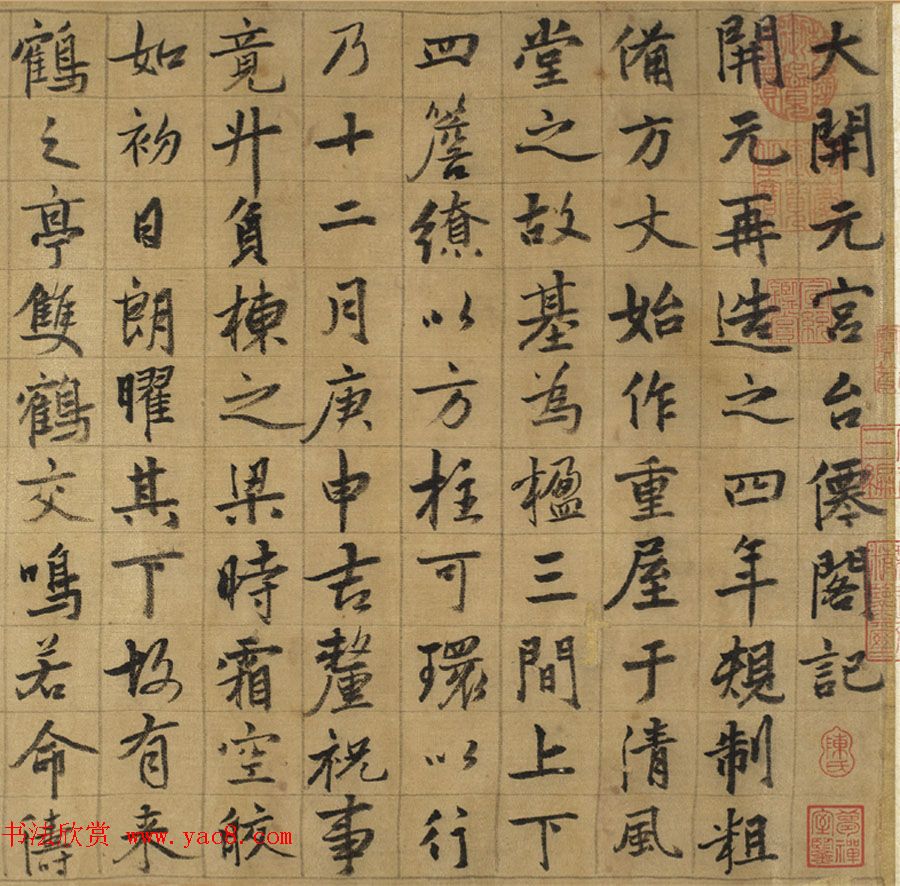 大開元宮台僊閣記
開元再造之四年䂓制粗
備方丈始作重屋于清風
堂之故基為楹三間上下
四簷繚以方柱可環以行
乃十二月庚申吉釐祝事
竟升負棟之梁時霜空皎
如初日朗曜其下故有来
鶴之亭雙鶴交鳴若命儔
陳氏
书法欣赏 www.yac8.com